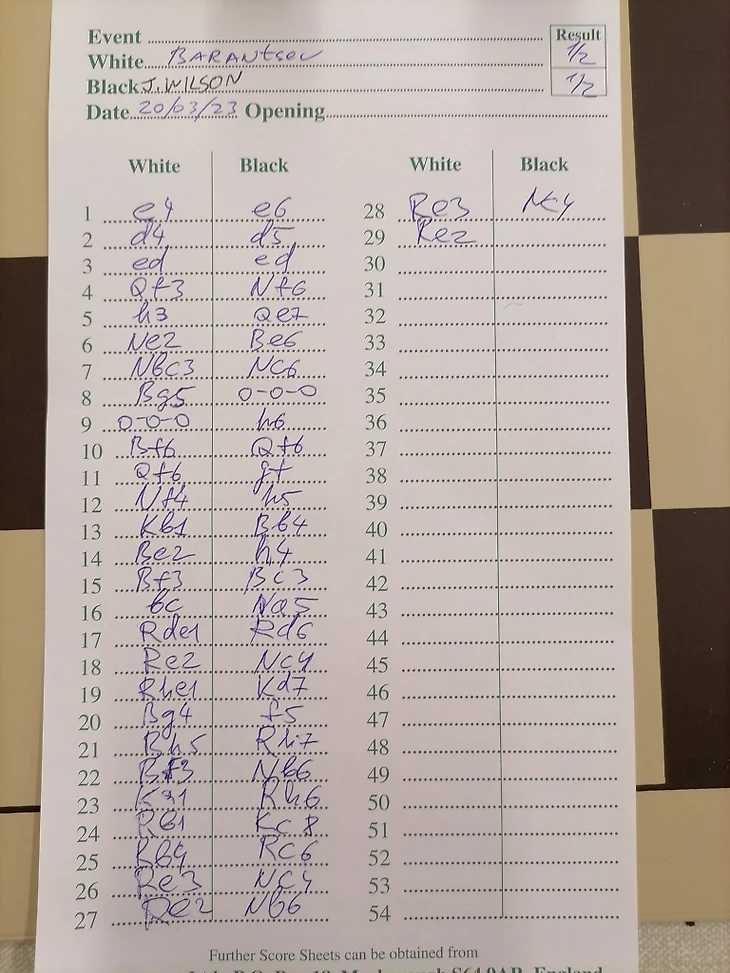 Event
Result
White BARANTSOV 1/2
Black J. WILSON 1/2
Date 20/03/23 Opening
White Black White Black
1 e4 e6 28 Re3 Nc4
2 d4 d5 29 Re2
3 ed ed 30
4 Qf3 Nf6 31
5 h3 Qe7 32
6 Ne2 Be6 33
7 Nbc3 Nc6 34
8 Bg5 0-0-0 35
9 0-0-0 h6 36
10 Bf6 Qf6 37
11 Qf6 gf 38
12 Nf4 h5 39
13 Kb1 Bb4 40
14 Be2 h4 41
15 Bf3 Bc3 42
16 bc Na5 43
17 Rde1 Rd6 44
18 Re2 Nc4 45
19 Rhe1 Kd7 46
20 Bg4 f5 47
21 Bh5 Rh7 48
22 Bf3 Nb6 49
23 Ka1 Rh6 50
24 Rb1 Kc8 51
25 Rb4 Rc6 52
26 Re3 Nc4 53
27 Re2 Nb6 54
Further Score Sheets can be obtained from